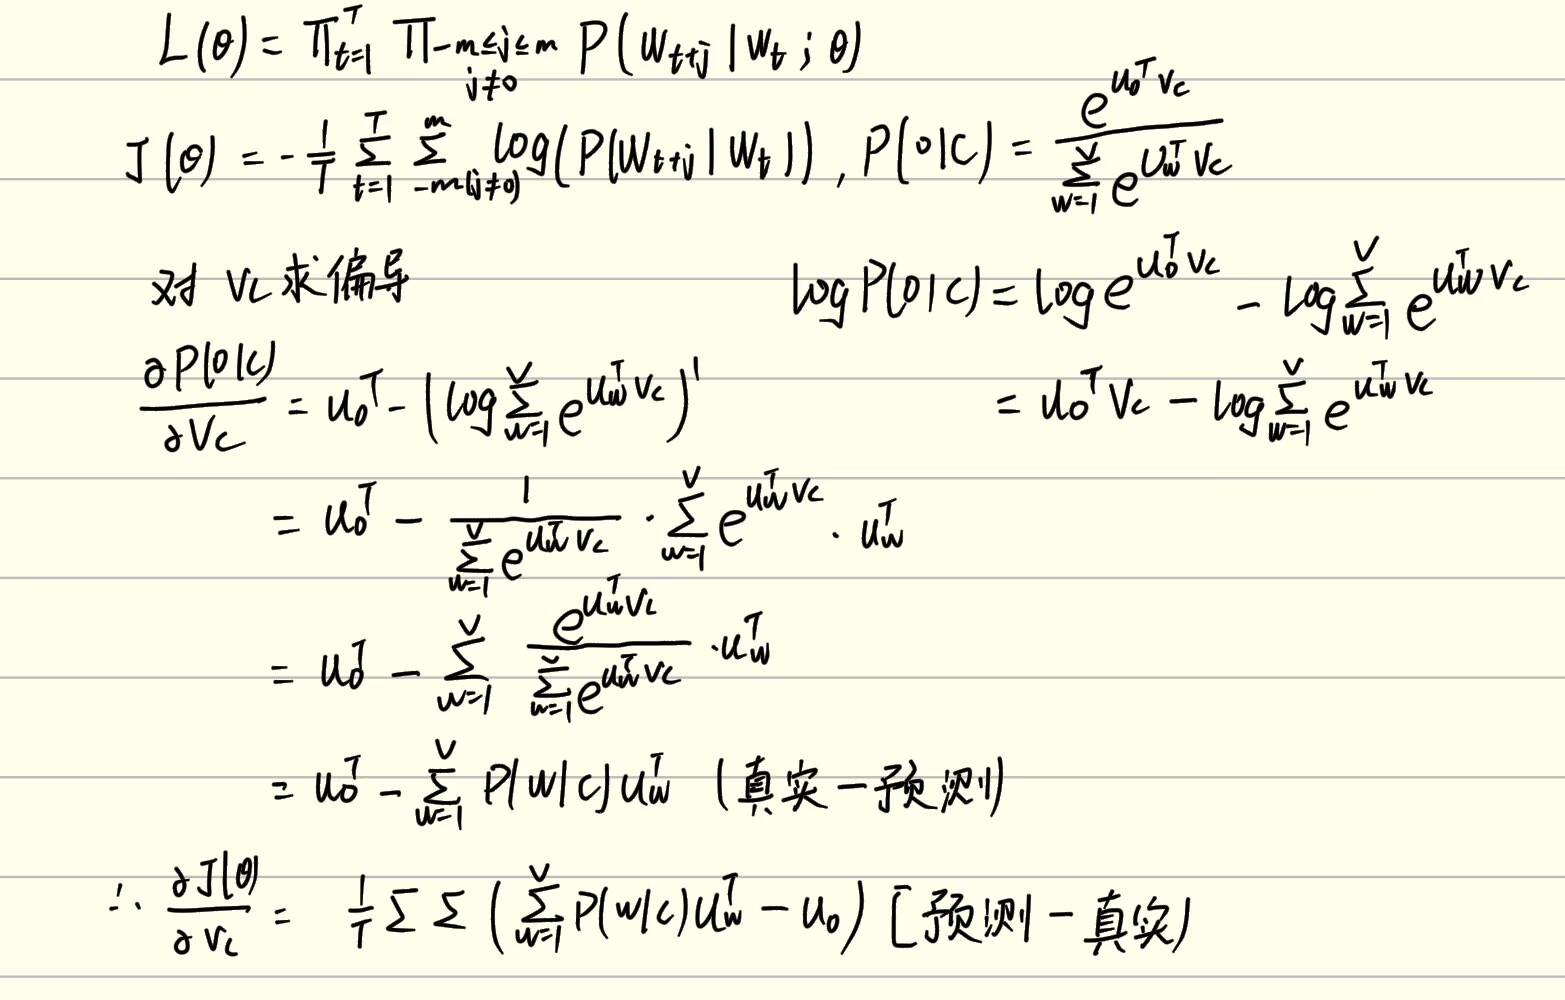 L(θ) = ∏_{t=1}^{T} ∏_{-m≤j≤m, j≠0} P(W_{t+j} | W_t ; θ)
J(θ) = -\frac{1}{T} \sum_{t=1}^{T} \sum_{-m(j≠0)}^{m} log(P(W_{t+j} | W_t)) , P(o|c) = \frac{e^{u_o^T v_c}}{\sum_{w=1}^{V} e^{u_w^T v_c}}
对 v_c 求偏导
log P(o|c) = log e^{u_o^T v_c} - log \sum_{w=1}^{V} e^{u_w^T v_c}
= u_o^T v_c - log \sum_{w=1}^{V} e^{u_w^T v_c}
\frac{∂P(o|c)}{∂v_c} = u_o^T - (log \sum_{w=1}^{V} e^{u_w^T v_c})'
= u_o^T - \frac{1}{\sum_{w=1}^{V} e^{u_w^T v_c}} · \sum_{w=1}^{V} e^{u_w^T v_c} · u_w^T
= u_o^T - \sum_{w=1}^{V} \frac{e^{u_w^T v_c}}{\sum_{w=1}^{V} e^{u_w^T v_c}} · u_w^T
= u_o^T - \sum_{w=1}^{V} P(w|c) u_w^T (真实-预测)
∴ \frac{∂J(θ)}{∂v_c} = \frac{1}{T} ∑ ∑ (\sum_{w=1}^{V} P(w|c) u_w^T - u_o) [预测-真实)